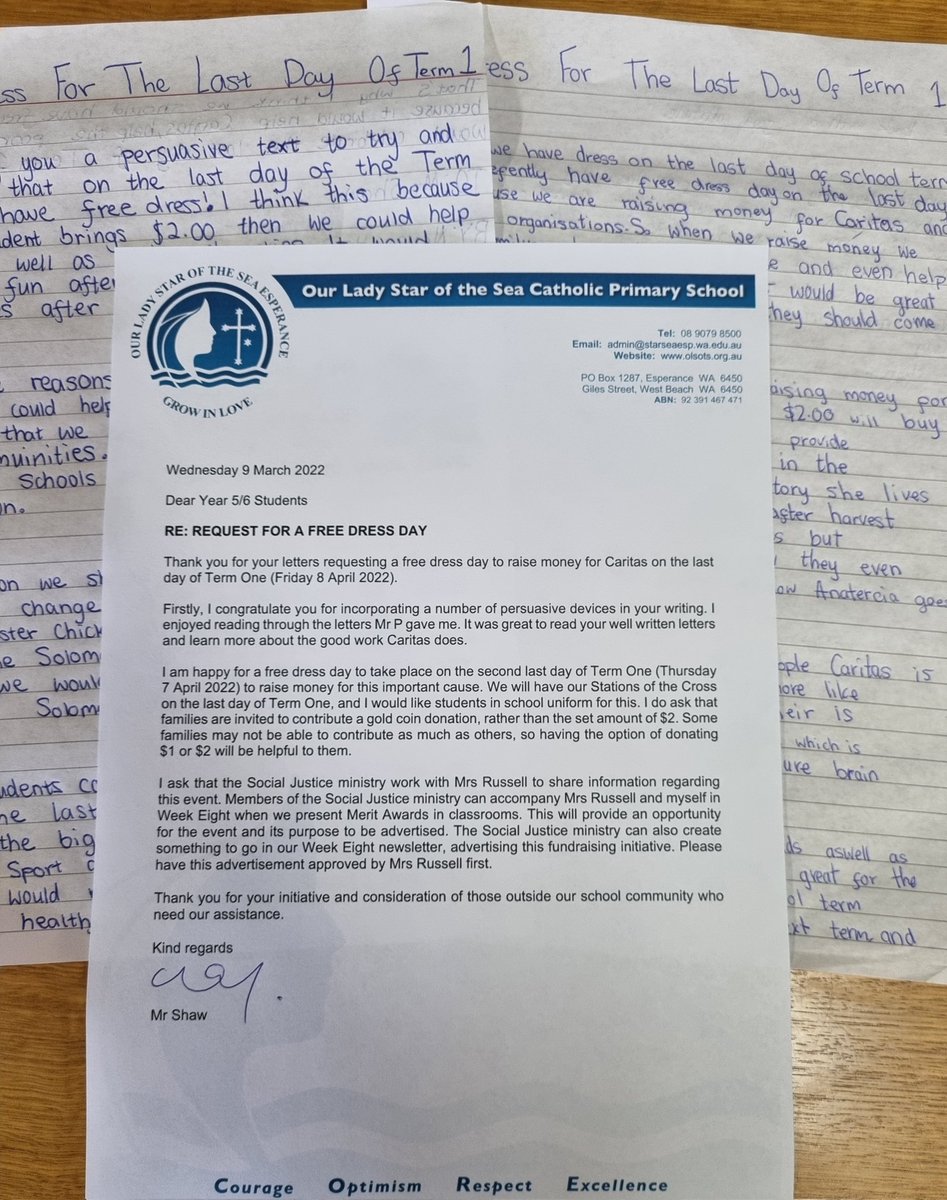 ess For The Last Day Of Term 1
you a persuasive text to try and
that on the last day of the Term
have free dress! I think this because
dent brings $2.00 then we could help
well as
fun after
s after
reasons
could help
that we
munities.
Schools
n.
on we sh
change
ster Chick
e Solom
we would
Solom
udents co
he last
the big
Sport
would
health
ess For The Last Day Of Term 1
we have dress on the last day of school term
efently have free dress day on the last day
use we are raising money for Caritas and
organisations. So when we raise money we
e and even help
would be great
they should come
aising money for
$2.00 will buy
provide
in the
tory she lives
aster harvest
s but
they even
ow Anatercia goes
ople Caritas is
more like
eir is
which is
ure brain
ds aswell as
great for the
ol term
xt term and
OUR LADY STAR OF THE SEA ESPERANCE
GROW IN LOVE
Our Lady Star of the Sea Catholic Primary School
Tel: 08 9079 8500
Email: admin@starseaesp.wa.edu.au
Website: www.olsots.org.au
PO Box 1287, Esperance WA 6450
Giles Street, West Beach WA 6450
ABN: 92 391 467 471
Wednesday 9 March 2022
Dear Year 5/6 Students
RE: REQUEST FOR A FREE DRESS DAY
Thank you for your letters requesting a free dress day to raise money for Caritas on the last
day of Term One (Friday 8 April 2022).
Firstly, I congratulate you for incorporating a number of persuasive devices in your writing. I
enjoyed reading through the letters Mr P gave me. It was great to read your well written letters
and learn more about the good work Caritas does.
I am happy for a free dress day to take place on the second last day of Term One (Thursday
7 April 2022) to raise money for this important cause. We will have our Stations of the Cross
on the last day of Term One, and I would like students in school uniform for this. I do ask that
families are invited to contribute a gold coin donation, rather than the set amount of $2. Some
families may not be able to contribute as much as others, so having the option of donating
$1 or $2 will be helpful to them.
I ask that the Social Justice ministry work with Mrs Russell to share information regarding
this event. Members of the Social Justice ministry can accompany Mrs Russell and myself in
Week Eight when we present Merit Awards in classrooms. This will provide an opportunity
for the event and its purpose to be advertised. The Social Justice ministry can also create
something to go in our Week Eight newsletter, advertising this fundraising initiative. Please
have this advertisement approved by Mrs Russell first.
Thank you for your initiative and consideration of those outside our school community who
need our assistance.
Kind regards
Mr Shaw
Courage Optimism Respect Excellence